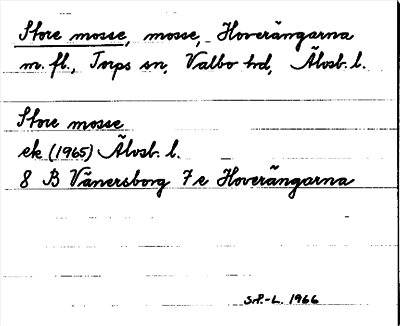 Store mosse, mosse, Hoverängarna
m. fl., Torps sn, Valbo hd, Älvsb. l.
Store mosse
ek (1965) Älvsb. l.
8 B Vänersborg 7e Hoverängarna
SrP.-L. 1966